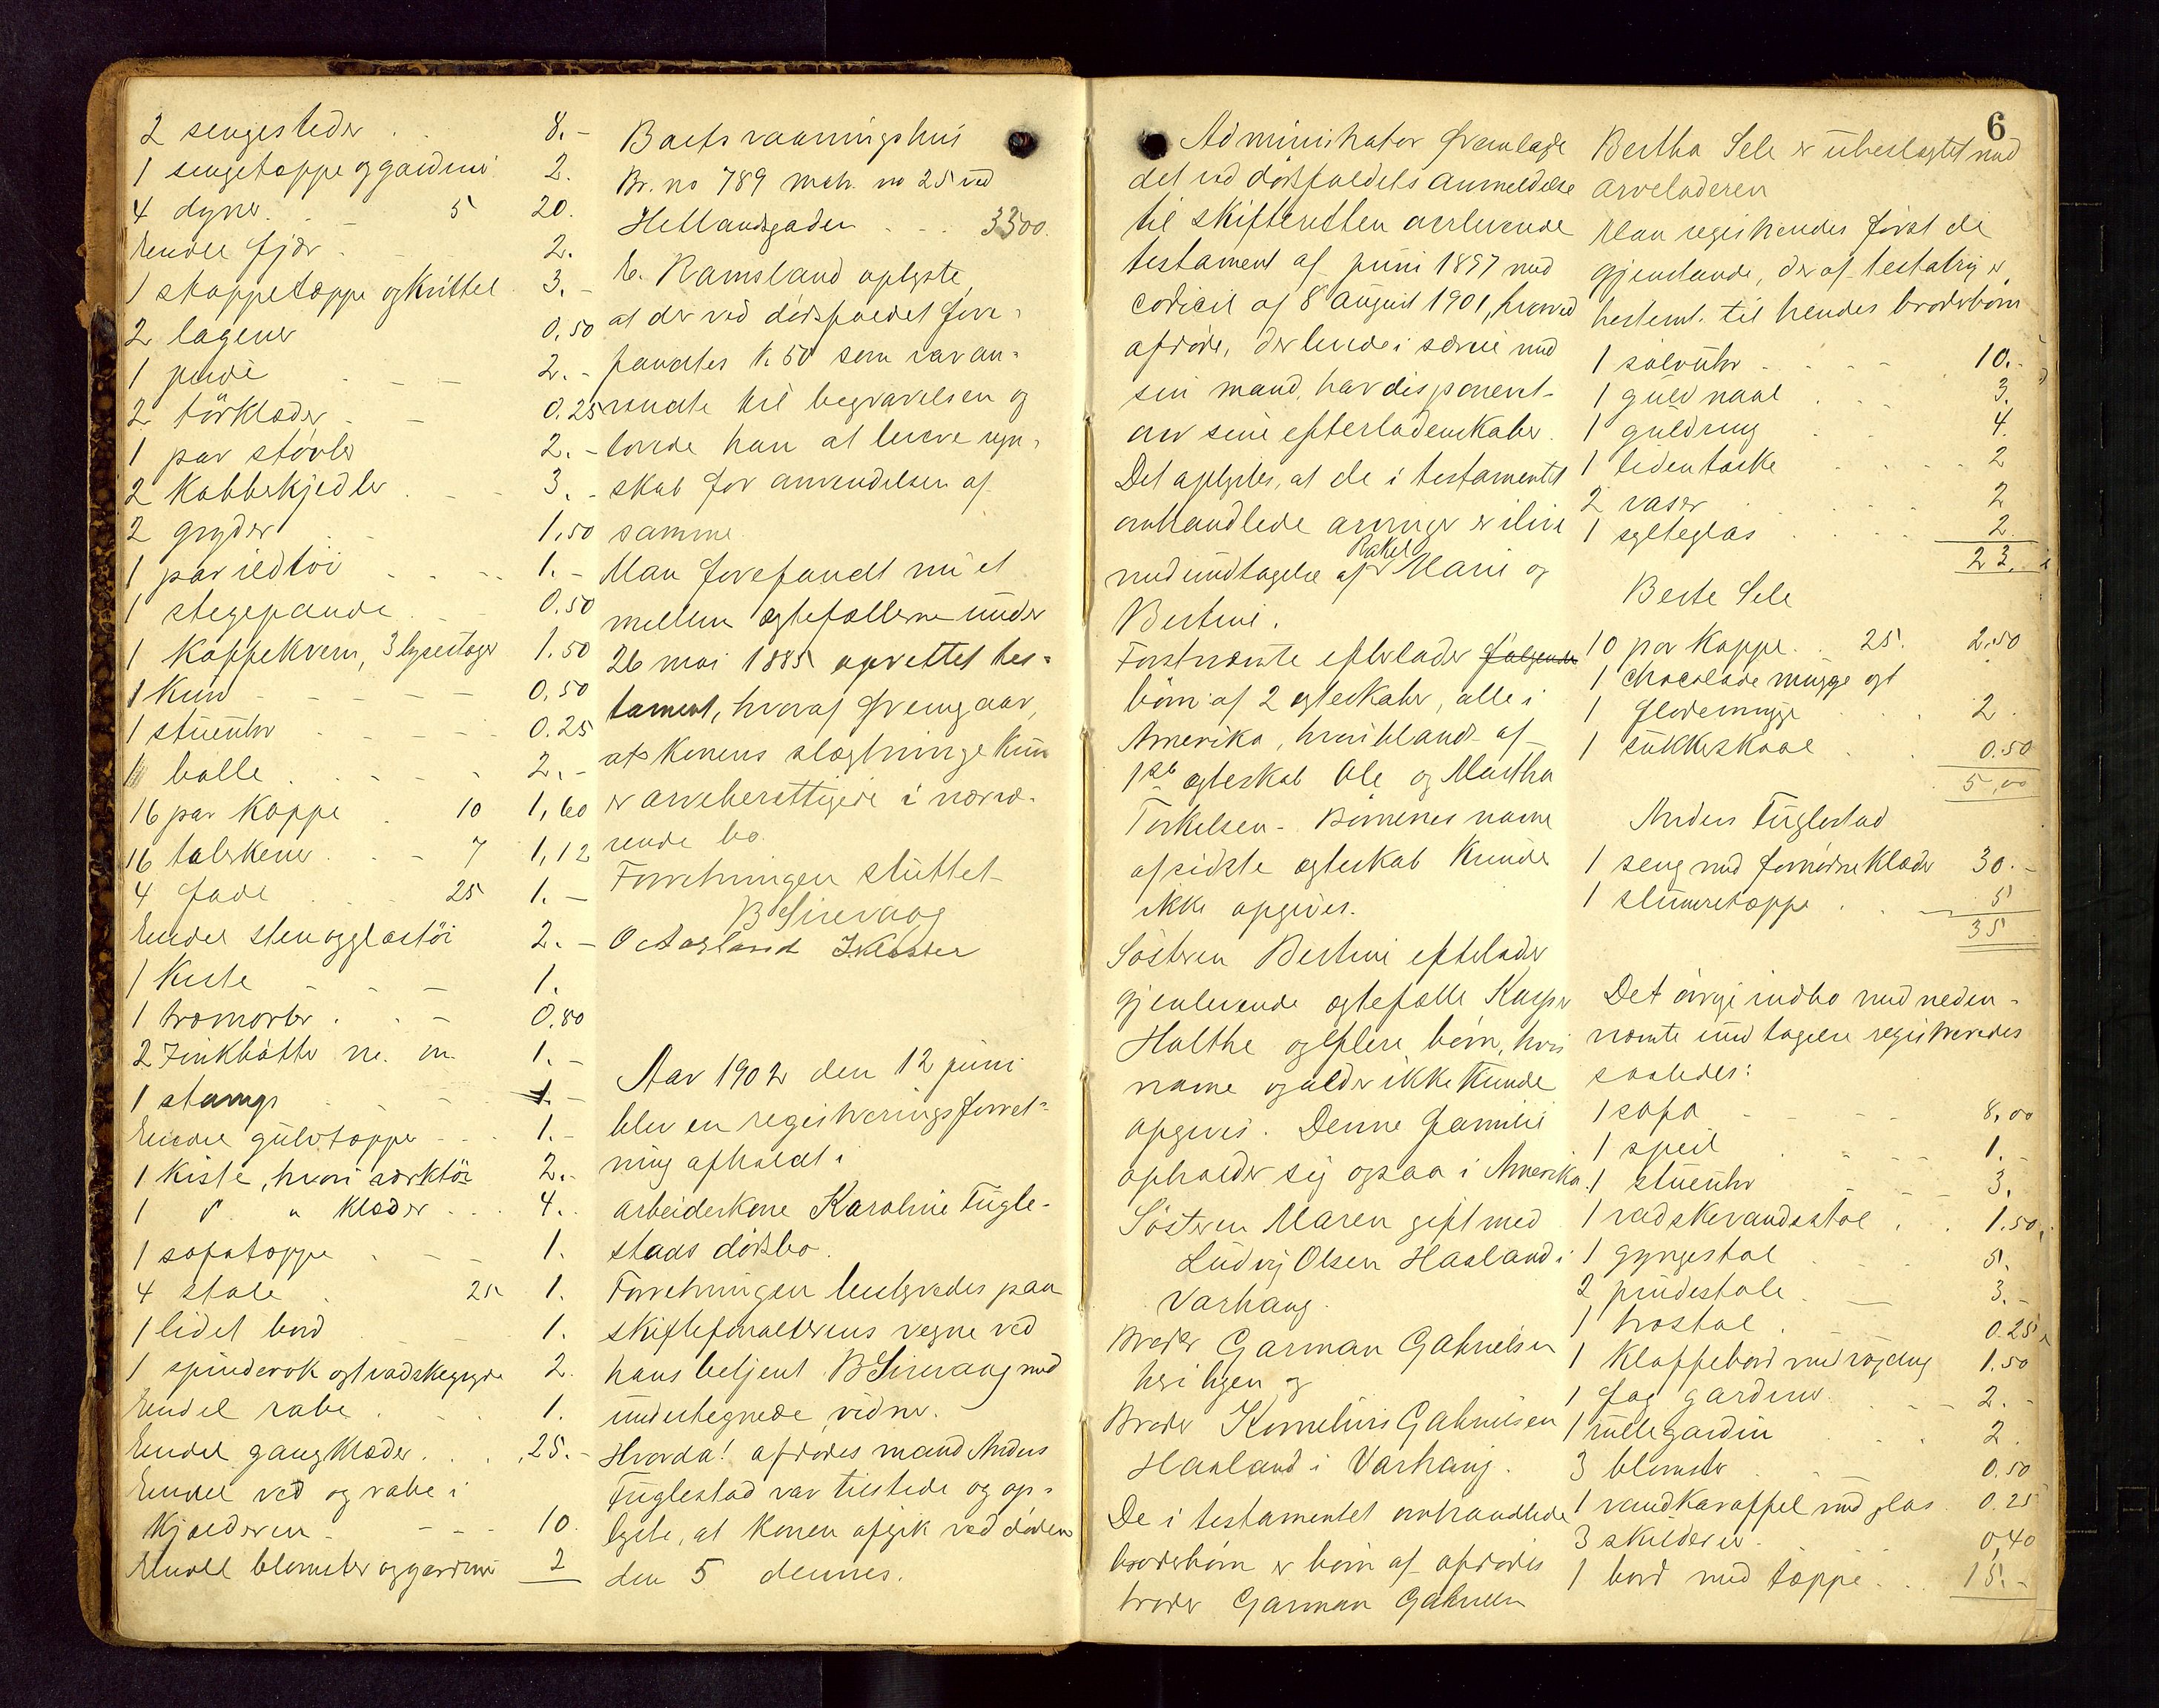 2 sengesteder . . 8.-
1 sengetæppe og gardiner 2.
4 dyner . . - 5 20.
Endel fjær - . 2.
1 stoppetæppe og Knittel 3.-
2 lagener 0.50
1 pude . - - 2.-
2 törklæder - 0.25
1 par støvler 2.-
2 Kobberkjedler . - 3.-
2 gryder . - 1,50
1 par ildtöi . . . 1.-
1 stegepande . - 0.50
1 Kaffekvern, 3 lysestager 1.50
1 Kurv - - - - 0,50
1 stueuhr - - - - 0.25
1 balle . . - - 2.-
16 par Koppe . 10 1,60
16 talerkener . - 7 1,12
4 fade . . 25 1.-
Endel sten og glastöi 2.-
1 Kiste - - - 1.
1 træmorter . . - 0,80
2 Zinkbøtter m. m. 1.-
1 stamp - - - 1.-
Endel gulvtæpper - . 1.-
1 Kiste, hvori værktöi 2.-
1 " " Klæder . . . 4.-
1 sofatæppe . - - 1.
4 stole . 25 1.
1 lidet bord - - 1.
1 spinderok og 1 vadskegryde 2.
Endel rabe . . 1.
Endel gangklæder . . 25.-
Endel ved og rabe i
Kjælderen - - - - 10.
Endel blomster og gardiner 2
Boets vaaningshus
Br. no 789 matr. no 25 ved
Hetlandsgaden - - . 3300.
E. Ramsland oplyste,
at der ved dödsfaldet fore-
fandtes K. 50 som var an-
vendte til begravelsen og
lovede han at levere regn-
skab for anvendelsen af
samme.
Man forefandt nu et
mellem ægtefællerne under
26 mai 1885 oprettet tes-
tament, hvoraf fremgaar,
at Konens slægtninge kun
er arveberettigede i nærvæ-
rende bo.
Forretningen sluttet
B Sirevaag
O Aarsland I Kloster
Aar 1902 den 12 juni
blev en registreringsforret-
ning afholdt i
arbeiderkone Karoline Fugle-
stads dødsbo.
Forretningen bestyredes paa
skifteforvalterens vegne ved
hans betjent B Sirevaag med
undertegnede vidner.
Hvorda! afdødes mand Anders
Fuglestad var tilstede og op-
lyste, at Konen afgik ved døden
den 5 dennes.
6
Administrator fremlagde
det ved dødsfaldets anmeldelse
til skifteretten overleverede
testament af juni 1897 med
codicil af 8 august 1901, hvorved
afdøde, der levede i særeie med
sin mand, har disponeret
over sine efterladenskaber.
Det oplystes, at de i testamentet
omhandlede arvinger er ilive
med undtagelse af Rakel Marie og
Bertine.
Forstnævnte efterlader følgende
börn af 2 ægteskaber, alle i
Amerika, hvoriblandt af
1ste ægteskab Ole og Martha
Torkelsen - Börnenes navne
af sidste ægteskab Kunde
ikke opgives.
Søsteren Bertine efterlader
gjenlevende ægtefælle Kasper
Holthe og flere börn, hvis
navne og alder ikke Kunde
opgives. Denne familie
opholder sig ogsaa i Amerika.
Søsteren Maren gift med
Ludvig Olsen Haaland i
Varhaug.
Broder Garman Gabrielsen
her i byen og
Broder Kornelius Gabrielsen
Haaland i Varhaug.
De i testamentet omhandlede
broderbørn er børn af afdødes
broder Garman Gabrielsen
Bertha Sele er ubeslægtet med
arveladeren
Man registrerede først de
gjenstande, der af testatrix er
bestemt til hendes broderbørn
1 sølvuhr - - - 10.-
1 guldnaal . . . 3.
1 guldring . . . 4.
1 lidentaske . . . 2
2 vaser . . . 2
1 sylteglas . . . 2
23.
Berte Sele
10 par Koppe . . 25. 2.50
1 chocolademugge og
1 flødemugge . . 2.
1 sukkerskaal . . 0.50
5,00
Anders Fuglestad
1 seng med fornødne Klæder 30.-
1 slumretæppe . . - 5
35
Det øvrige indbo med neden-
nævnte undtagelse registreredes
saaledes:
1 sofa - - - - 8,00
1 speil . - - - 1.-
1 stueuhr - - - 3.
1 vadskevandsstol . . 1.50
1 gyngestol . . . 5.
2 pindestole . - 3.-
1 trostol . 0.25
1 Klaffebord med voxdug 1.50
1 fag gardiner . - - 2.-
1 rullegardin . . . 2.
3 blomster . 0.50
1 vandkaraffel med glas . 0.25
3 skilderier . - 0,40
1 bord med tæppe . . . 15.-